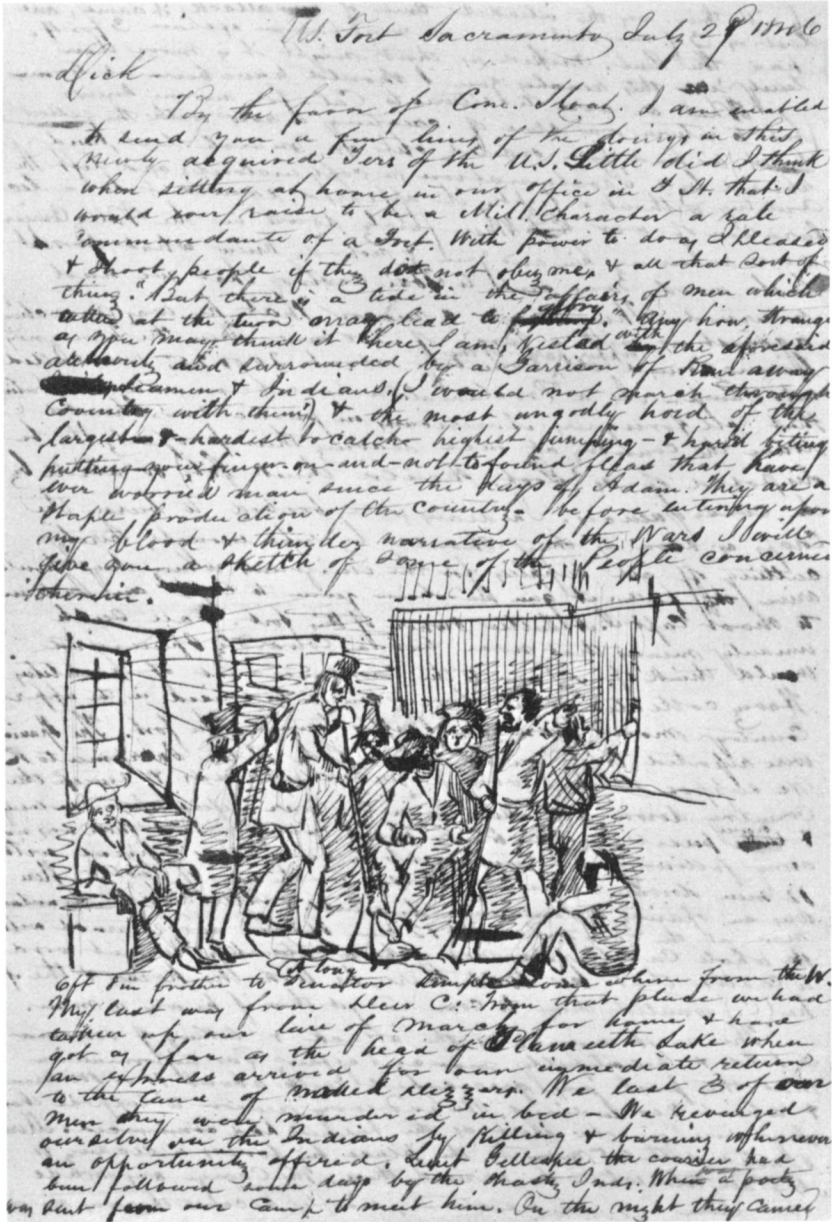 U.S. Fort Sacramento July 29 1846
Dick
By the favor of Com. Sloat. I am enabled
to send you a few lines of the doings in this
newly acquired Terr of the U.S. Little did I think
when sitting at home in our office in 7 St. that I
would ever raise to be a Mil. Character a rale
Commandante of a Fort. With power to do as I pleased
& shoot people if they did not obey me, & all that sort of
thing." But there is a tide in the affairs of men which
taken at the turn may lead to glory." Any how strange
as you may think it here I am. with the aforesaid
authority and surrounded by a Garrison of Run away
Seamen & Indians. (I would not march through
Coventry with them) & the most ungodly hord of the
largest & hardest to catch highest jumping - & hard biting
putting your finger on and not to found fleas that have
ever worried man since the days of Adam. They are a
staple production of the country - before entering upon
my blood & thunder narrative of the Wars I will
give you a sketch of some of the People concerned
therein.
A long
6ft 8in brother to Senator Semple some where from the W.
My last was from Deer C: From that place we had
taken up our line of march for home & have
got as far as the head of Tlamath Lake when
an express arrived for our immediate return
to the land of naked diggers. We last 3 of our
men they were murdered in bed - We revenged
ourselves on the Indians by Killing & burning whenever
an opportunity offired. Lieut Gillespie the courier had
been followed some days by the Shasty Inds. When a party
was sent from our camp to meet him. On the night they camped